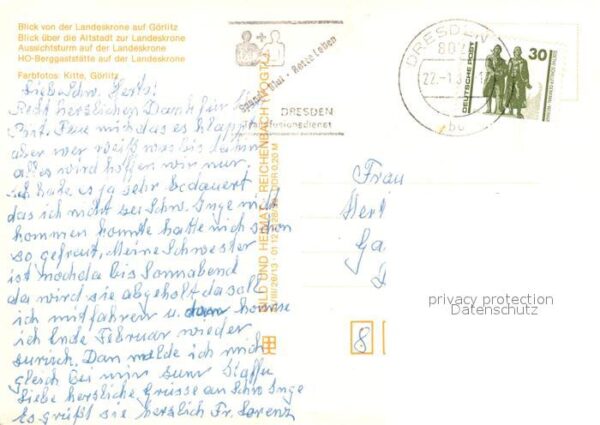 Blick von der Landeskrone auf Görlitz
Blick über die Altstadt zur Landeskrone
Aussichtsturm auf der Landeskrone
HO-Berggaststätte auf der Landeskrone
Farbfotos: Kitte, Görlitz
Liebe Schw. Herta!
Recht herzlichen Dank für
Brf. Freue mich das es klappt
aber wer weiß was bis dahin
alles wird hoffen wir nur.
ich habe es ja sehr bedauert
das ich nicht bei Schw. Inge mit
kommen konnte hatte mich schon
so gefreut, Meine Schwester
ist noch da bis Sonnabend
da wird sie abgeholt da soll
ich mitfahren u. dann komme
ich Ende Februar wieder
zurück. Dan melde ich mich
gleich bei mir zum
Liebe herzliche Grüsse an Schw. Inge
Es grüßt sie herzlich Fr. Lorenz
Spende Blut - Rette Leben
DRESDEN
BILD UND HEIMAT REICHENBACH (VOGTL)
DRESDEN
DEUTSCHE POST
30
Frau
Hert
Ga
8
privacy protection
Datenschutz